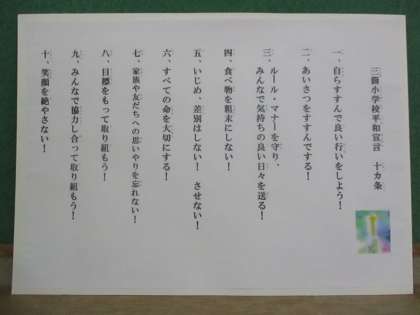 三鷹小学校平和宣言 十カ条
一、自らすすんで良い行いをしよう！
二、あいさつをすすんでする！
三、ルール・マナーを守り、
みんなで気持ちの良い日々を送る！
四、食べ物を粗末にしない！
五、いじめ、差別はしない！ させない！
六、すべての命を大切にする！
七、家族や友だちへの思いやりを忘れない！
八、目標をもって取り組もう！
九、みんなで協力し合って取り組もう！
十、笑顔を絶やさない！